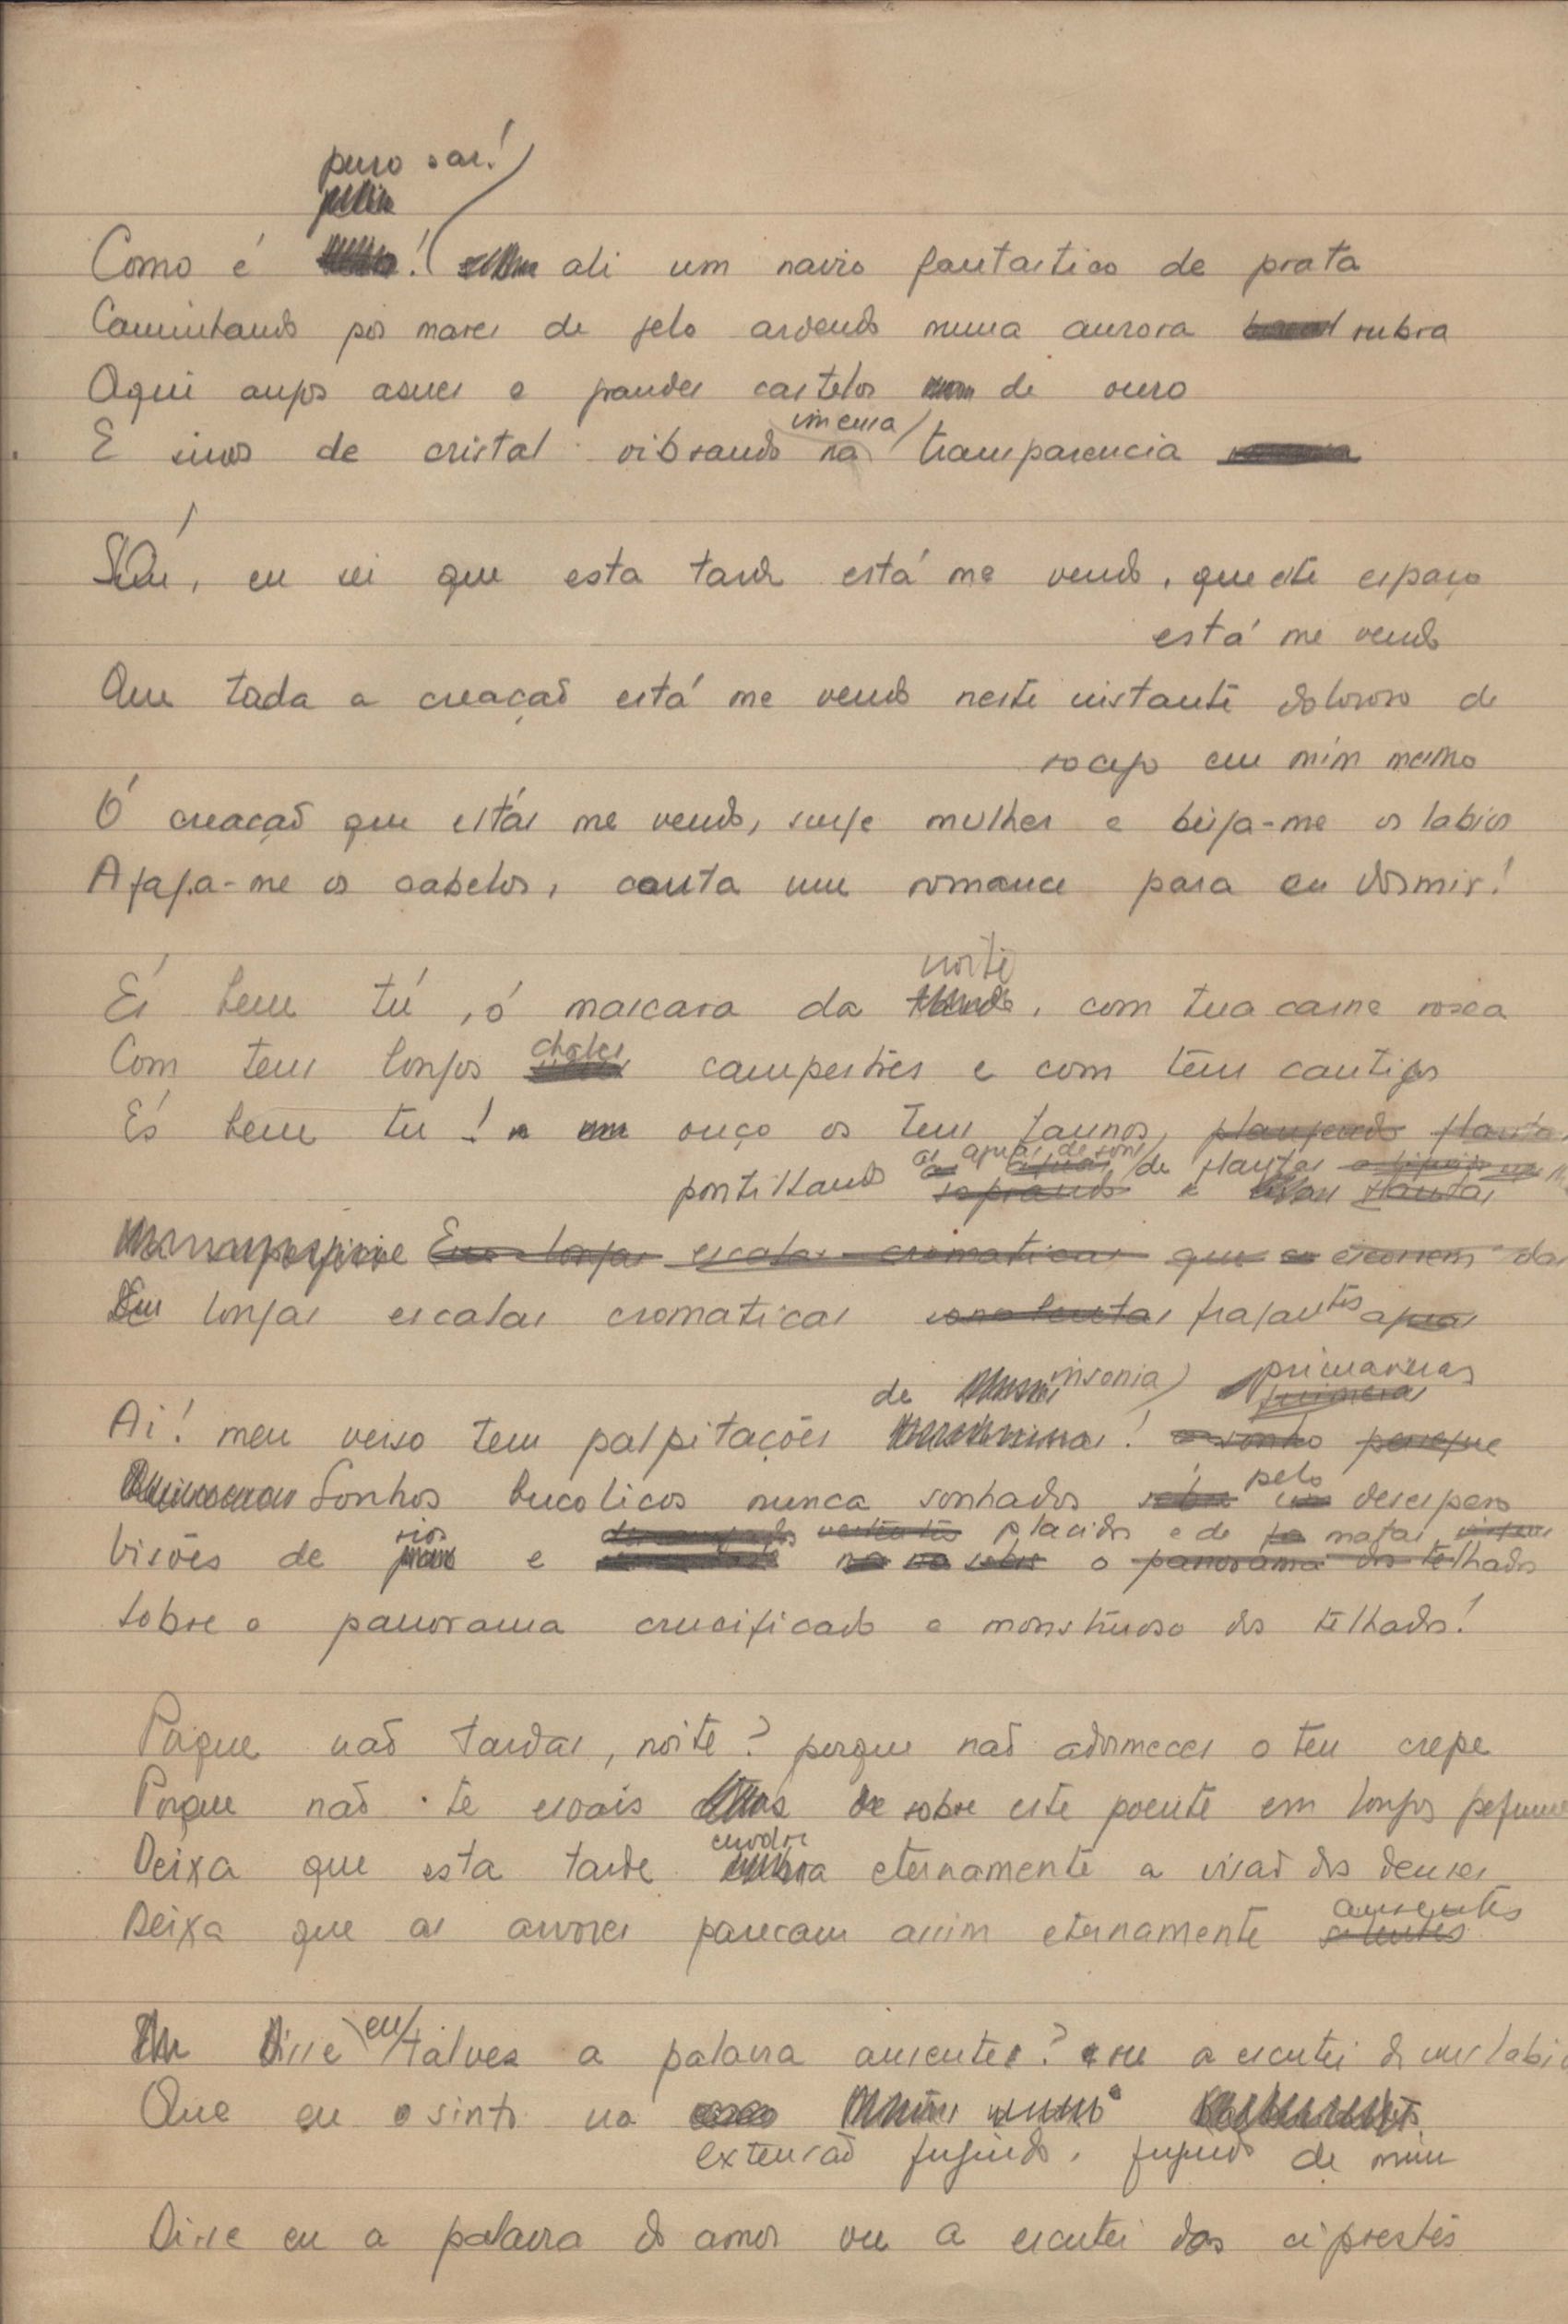 puro o ar!
Como é ! ali um navio fantastico de prata
Caminhando por mares de gelo ardendo numa aurora rubra
Aqui anjos asues e grandes castelos de ouro
imensa
E sinos de cristal vibrando na transparencia
Sim, eu sei que esta tarde está me vendo, que este espaço
está me vendo
Que toda a creação está me vendo neste instante doloroso de
socego em mim mesmo
Ó creacão que estás me vendo, surge mulher e beija-me os labios
Afaga-me os cabelos, canta um romance para eu dormir!
noite
És bem tú, ó mascara da tarde, com tua carne rosea
chales
Com teus longos campestres e com teus cantigos
És bem tu! ouço os teus faunos, plangendo flautas
as aguas de sons
pontilhando as aguas de flautas
soprando e flautas
Em longas escalas cromaticas que escorrem das
Em longas escalas cromaticas sonolentas fragantes aguas
de insonia primaveras
Ai! meu verso tem palpitações ! o sonho persegue
pelo
Sonhos bucolicos nunca sonhados sobre desespero
rios vertentes placidos e de matas virgens
Visões de e sobre o panorama dos telhados
Sobre o panorama crucificado e monstruoso dos telhados!
Porque não tardas, noite? porque não adormeces o teu crepe
Porque não te esvais de sobre este poente em longos pefumes
envolva
Deixa que esta tarde eternamente a visão dos deuses
ausentes
Deixa que as arvores parecam assim eternamente silentes
Disse eu talves a palavra ausentes? ou a escutei de uns labios
Que eu o sinto na
extensão fugindo, fugindo de mim
Disse eu a palavra do amor ou a escutei dos ciprestes